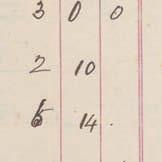 3 0 0
2 10
6 14 .